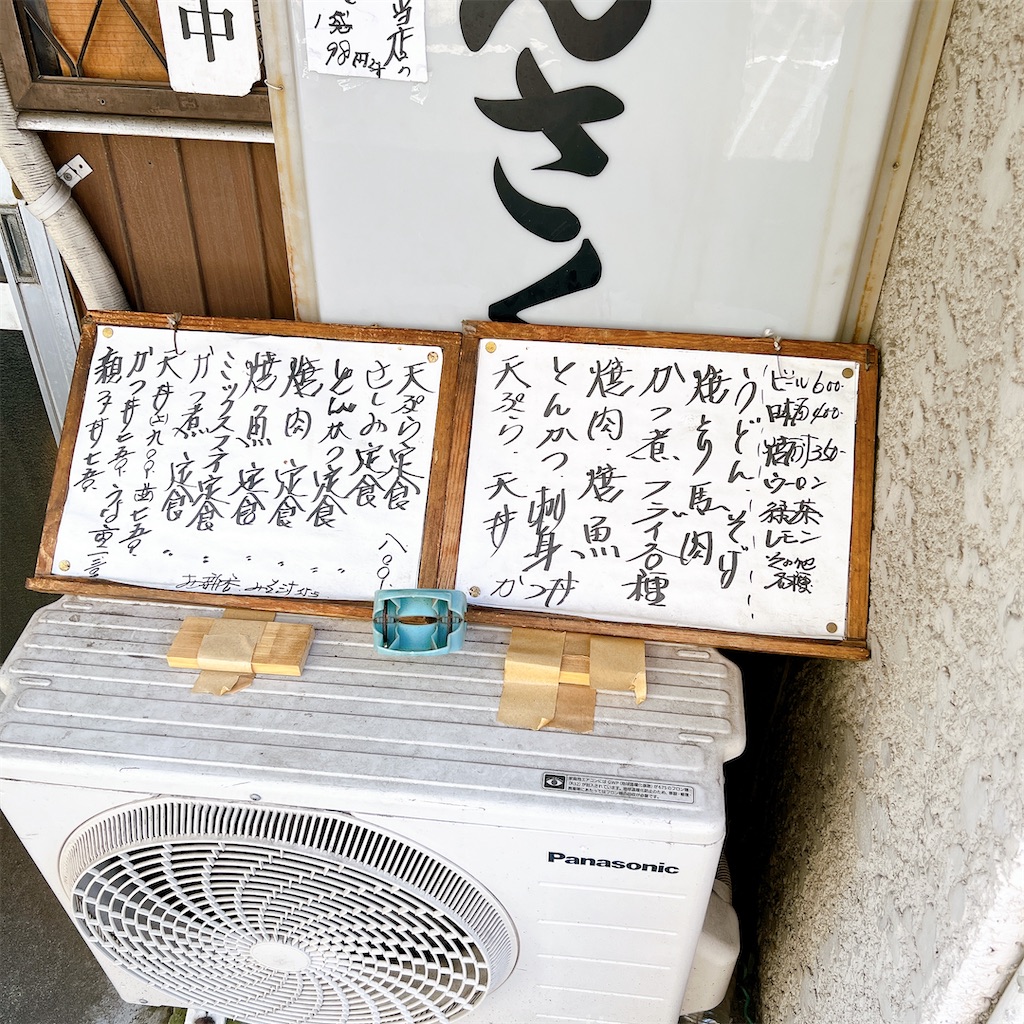 中
当店の
1 98円
さく
ビール600-
日本酒400-
焼酎350-
ウーロン
緑茶
レモン
その他各種
うどん.そば
焼とり 馬肉
かつ煮 フライ各種
焼肉.焼魚
とんかつ 刺身
天ぷら.天丼 か
つ丼
天ぷら定食 八〇〇
さしみ定食
とんかつ定食 〃
焼肉 定食 〃
焼魚 定食 〃
ミックスフライ定食
かつ煮 定食 〃
天丼 九〇〇
かつ丼七五〇
親子丼七五〇
お新香 みそ汁付
Panasonic